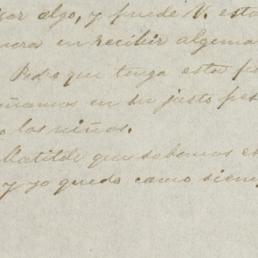 sar algo, y puede V. esta
en recibir alguna
Pedro que tenga esta po
en su justo pes
los niños.
Matilde que sabemos es
y yo quedo como siem